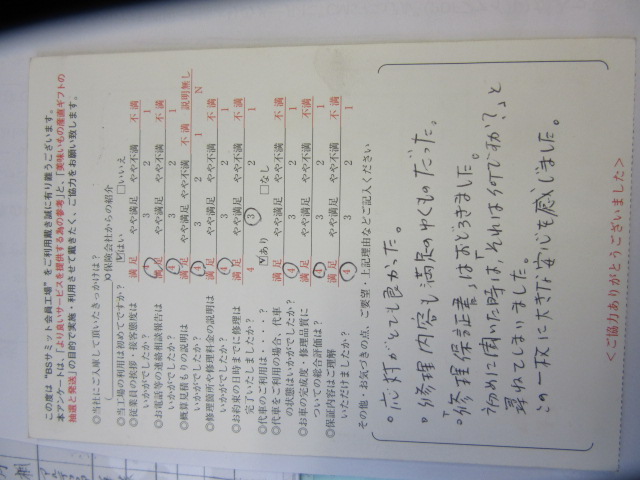 この度は"BSサミット会員工場"をご利用戴き誠に有り難うございます。
本アンケートは、「より良いサービスを提供する為の参考」と、「美味いもの産直ギフトの
抽選と発送」の目的で実施・利用させて戴きたく、ご協力をお願い致します。
◎当社にご入庫して頂いたきっかけは？
保険会社からの紹介
◎当工場の利用は初めてですか？ ☑はい □いいえ
◎従業員の挨拶・接客態度は 満足 やや満足 やや不満 不満
いかがでしたか？ 4 3 2 1
◎お電話等の連絡相談報告は 満足 やや満足 やや不満 不満
いかがでしたか？ 4 3 2 1
◎概算見積もりの説明は 満足 やや満足 やや不満 不満 説明無し
いかがでしたか？ 4 3 2 1 N
◎修理箇所や修理料金の説明は 満足 やや満足 やや不満 不満
いかがでしたか？ 4 3 2 1
◎お約束の日時までに修理は 満足 やや満足 やや不満 不満
完了いたしましたか？ 4 3 2 1
◎代車のご利用は・・・・？ ☑あり □なし
◎代車をご利用の場合、代車 満足 やや満足 やや不満 不満
の状態はいかがでしたか？ 4 3 2 1
◎お車の完成度・修理品質に 満足 やや満足 やや不満 不満
ついての総合評価は？ 4 3 2 1
◎保証内容はご理解 満足 やや満足 やや不満 不満
いただけましたか？ 4 3 2 1
その他・お気づきの点、ご要望・上記理由などご記入ください
・応対がとても良かった。
・修理内容も満足のゆくものだった。
・「修理保証書」はおどろきました。
初めに聞いた時は、「それは何ですか？」と
尋ねてしまいました。
この一枚に大きな安心を感じました。
＜ご協力ありがとうございました＞